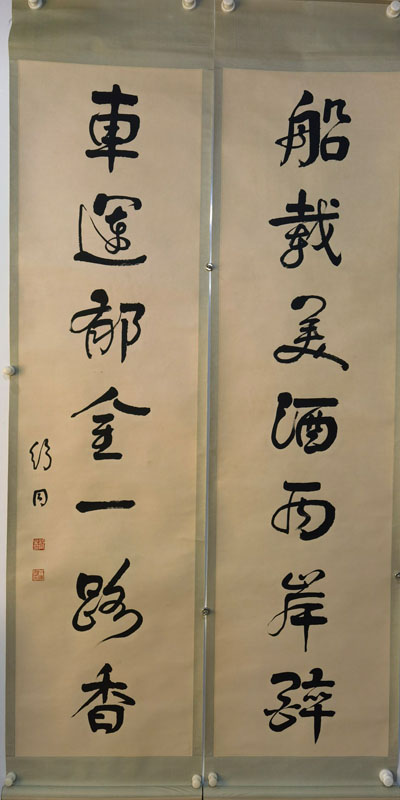 船載美酒兩岸醉
車運郁金一路香
舒同